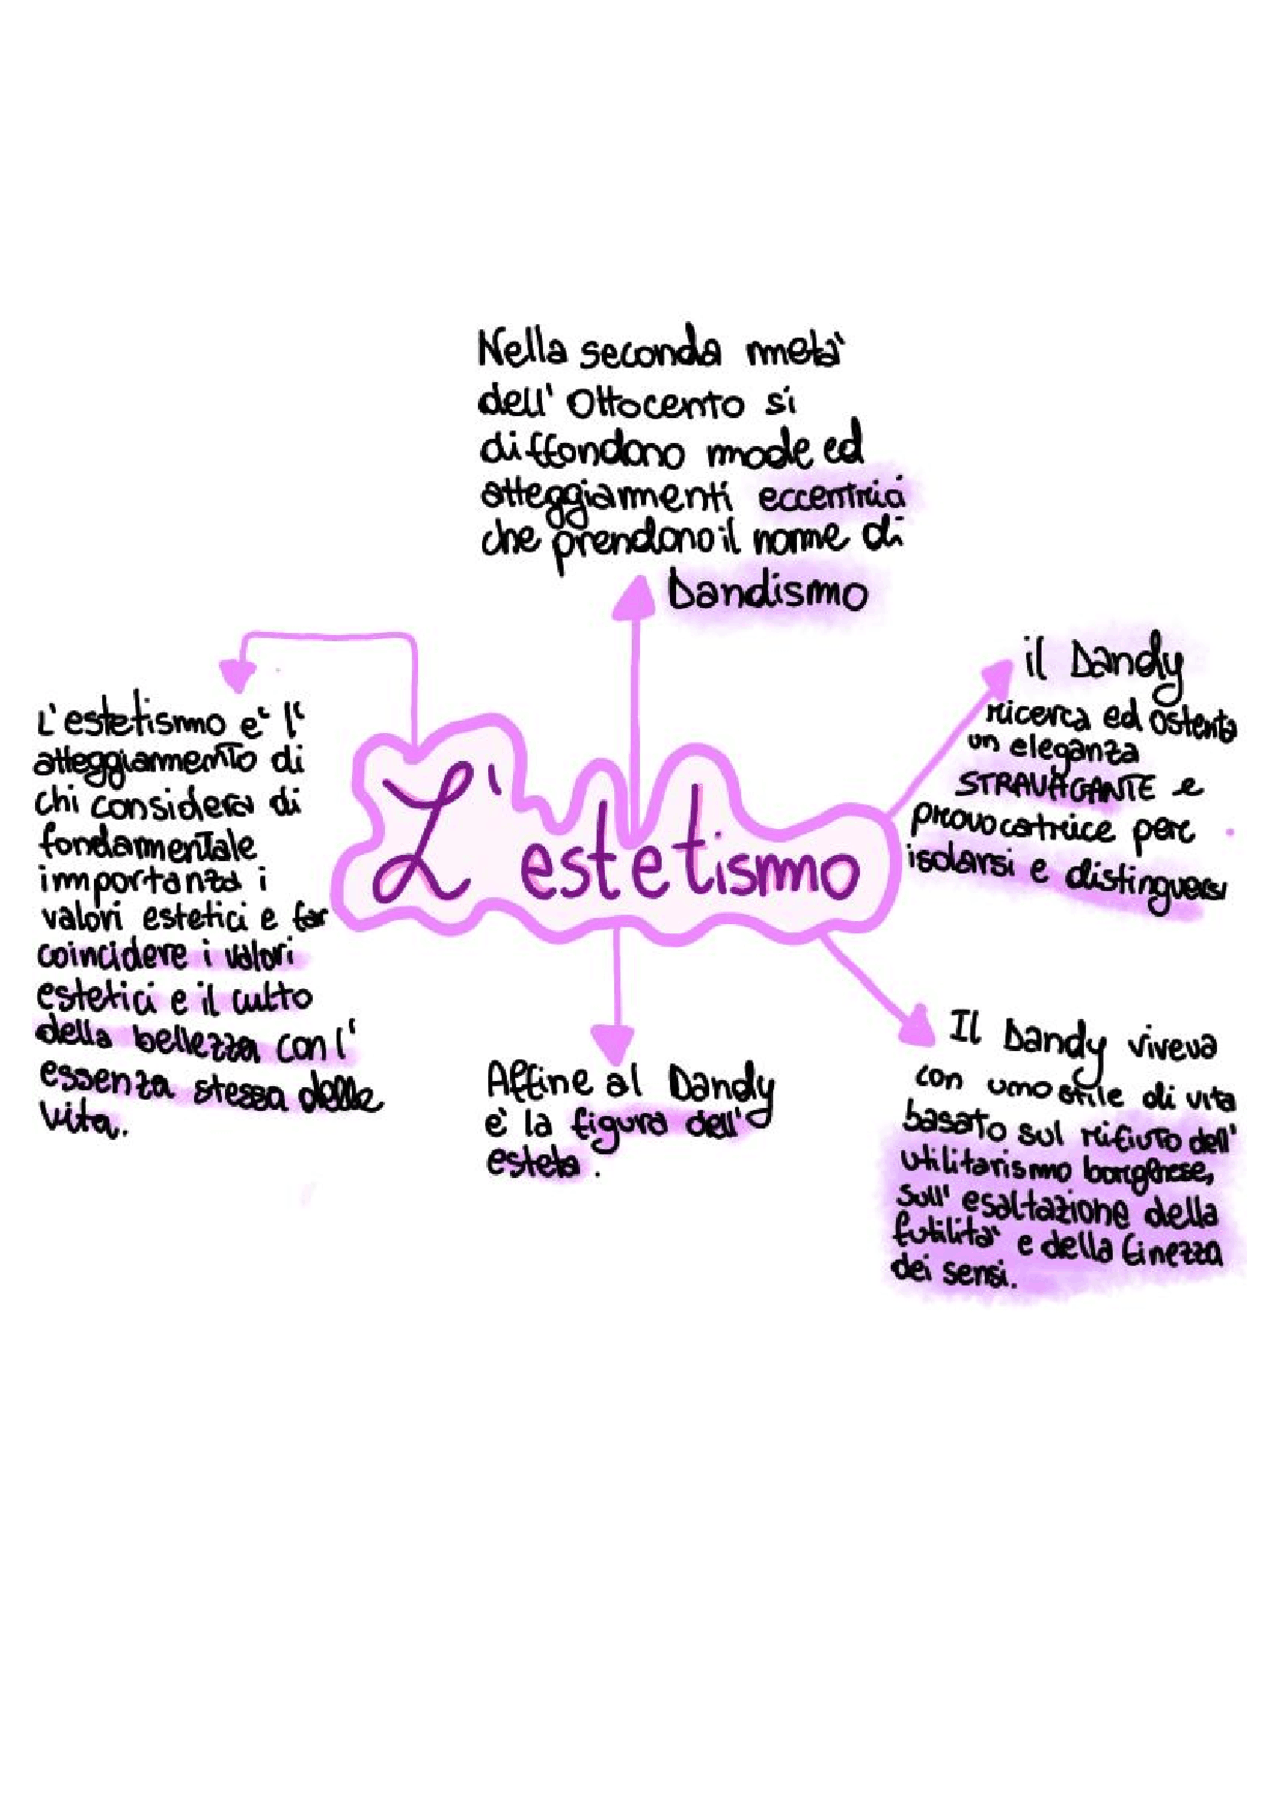 Nella seconda metà
dell' Ottocento si
diffondono mode ed
atteggiamenti eccentrici
che prendono il nome di
Dandismo
il Dandy
ricerca ed ostenta
un eleganza
STRAVAGANTE e
provocatrice per
isolarsi e distinguersi
L'estetismo è l'
atteggiamento di
chi considera di
fondamentale
importanza i
valori estetici e far
coincidere i valori
estetici e il culto
della bellezza con l'
essenza stessa delle
vita.
L'estetismo
Affine al Dandy
è la figura dell'
esteta.
Il Dandy viveva
con uno stile di vita
basato sul rifiuto dell'
utilitarismo borghese,
sull' esaltazione della
futilità e della finezza
dei sensi.